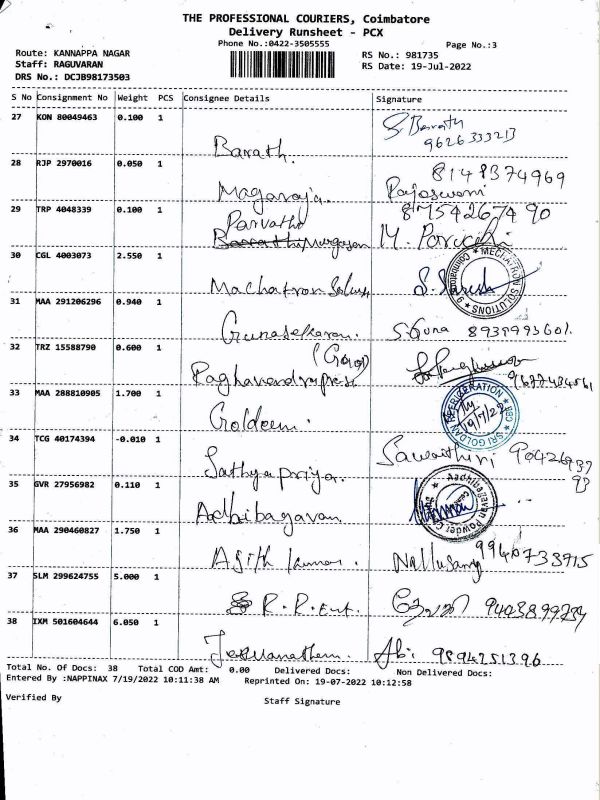 THE PROFESSIONAL COURIERS, Coimbatore
Delivery Runsheet - PCX
Phone No.:0422-3505555
Page No.:3
Route: KANNAPPA NAGAR
Staff: RAGUVARAN
DRS No.: DCJB98173503
RS No.: 981735
RS Date: 19-Jul-2022
S No Consignment No Weight PCS Consignee Details Signature
27 KON 80049463 0.100 1
Barath. S. Barath
9626333213
28 RJP 2970016 0.050 1
8148374969
Magaraja. Rajaswami
29 TRP 4048339 0.100 1
Parvathi 8754267490
Murugesan M.
30 CGL 4003073 2.550 1
MECHATRON SOLUTIONS
Coimbatore - 9
S. Suresh
31 MAA 291206296 0.940 1
Gunasekaran. S. Guna 8939993601.
32 TRZ 15588790 0.600 1
33 MAA 288810905 1.700 1
SRI GOLDAN REFRIGERATION CBE
19/7/22
Goldeem.
34 TCG 40174394 -0.010 1
Sathya priya.
35 GVR 27956982 0.110 1
Aadhibagavan Powder
Adhibagavan
36 MAA 290460827 1.750 1
Ajith kumar. Nallusamy 9940733915
37 SLM 299624755 5.000 1
R.R.Ent.
38 IXM 501604644 6.050 1
Abi 9894251396
Total No. Of Docs: 38 Total COD Amt: 0.00 Delivered Docs: Non Delivered Docs:
Entered By :NAPPINAX 7/19/2022 10:11:38 AM Reprinted On: 19-07-2022 10:12:58
Verified By Staff Signature